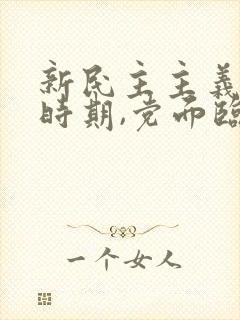 新民主主義
時期,党面臨
一个女人